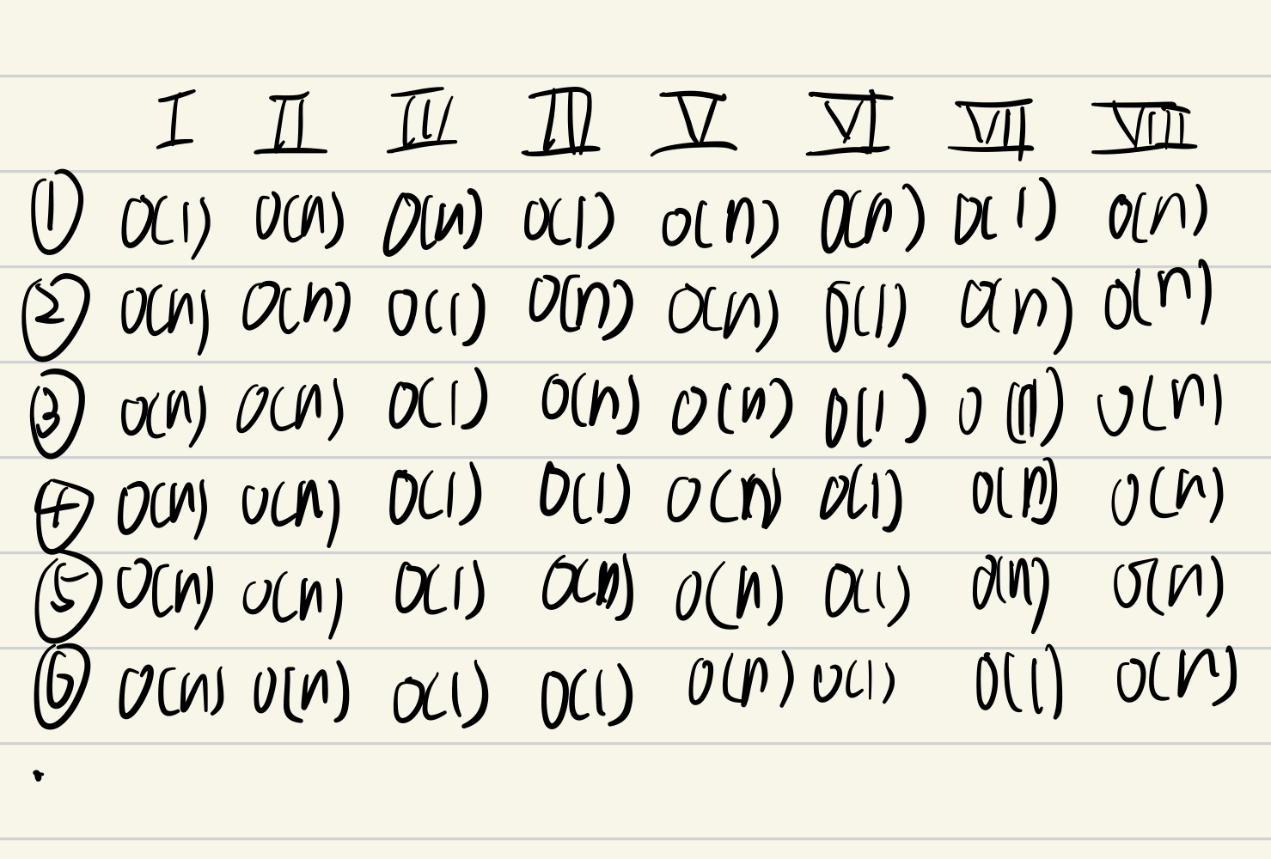 I II IV III V VI VII VIII
① O(1) O(n) O(n) O(1) O(n) O(n) O(1) O(n)
② O(n) O(n) O(1) O(n) O(n) O(1) O(n) O(n)
③ O(n) O(n) O(1) O(n) O(n) O(1) O(n) O(n)
④ O(n) O(n) O(1) O(1) O(n) O(1) O(n) O(n)
⑤ O(n) O(n) O(1) O(n) O(n) O(1) O(n) O(n)
⑥ O(n) O(n) O(1) O(1) O(n) O(1) O(1) O(n)